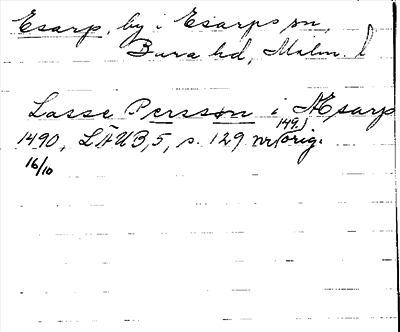 Esarp, by i Esarps sn,
Bara hd, Malm. l
Lasse Persson i Æsarp
1490, LÄUB, 5, s. 129 nr 149, orig.
16/10